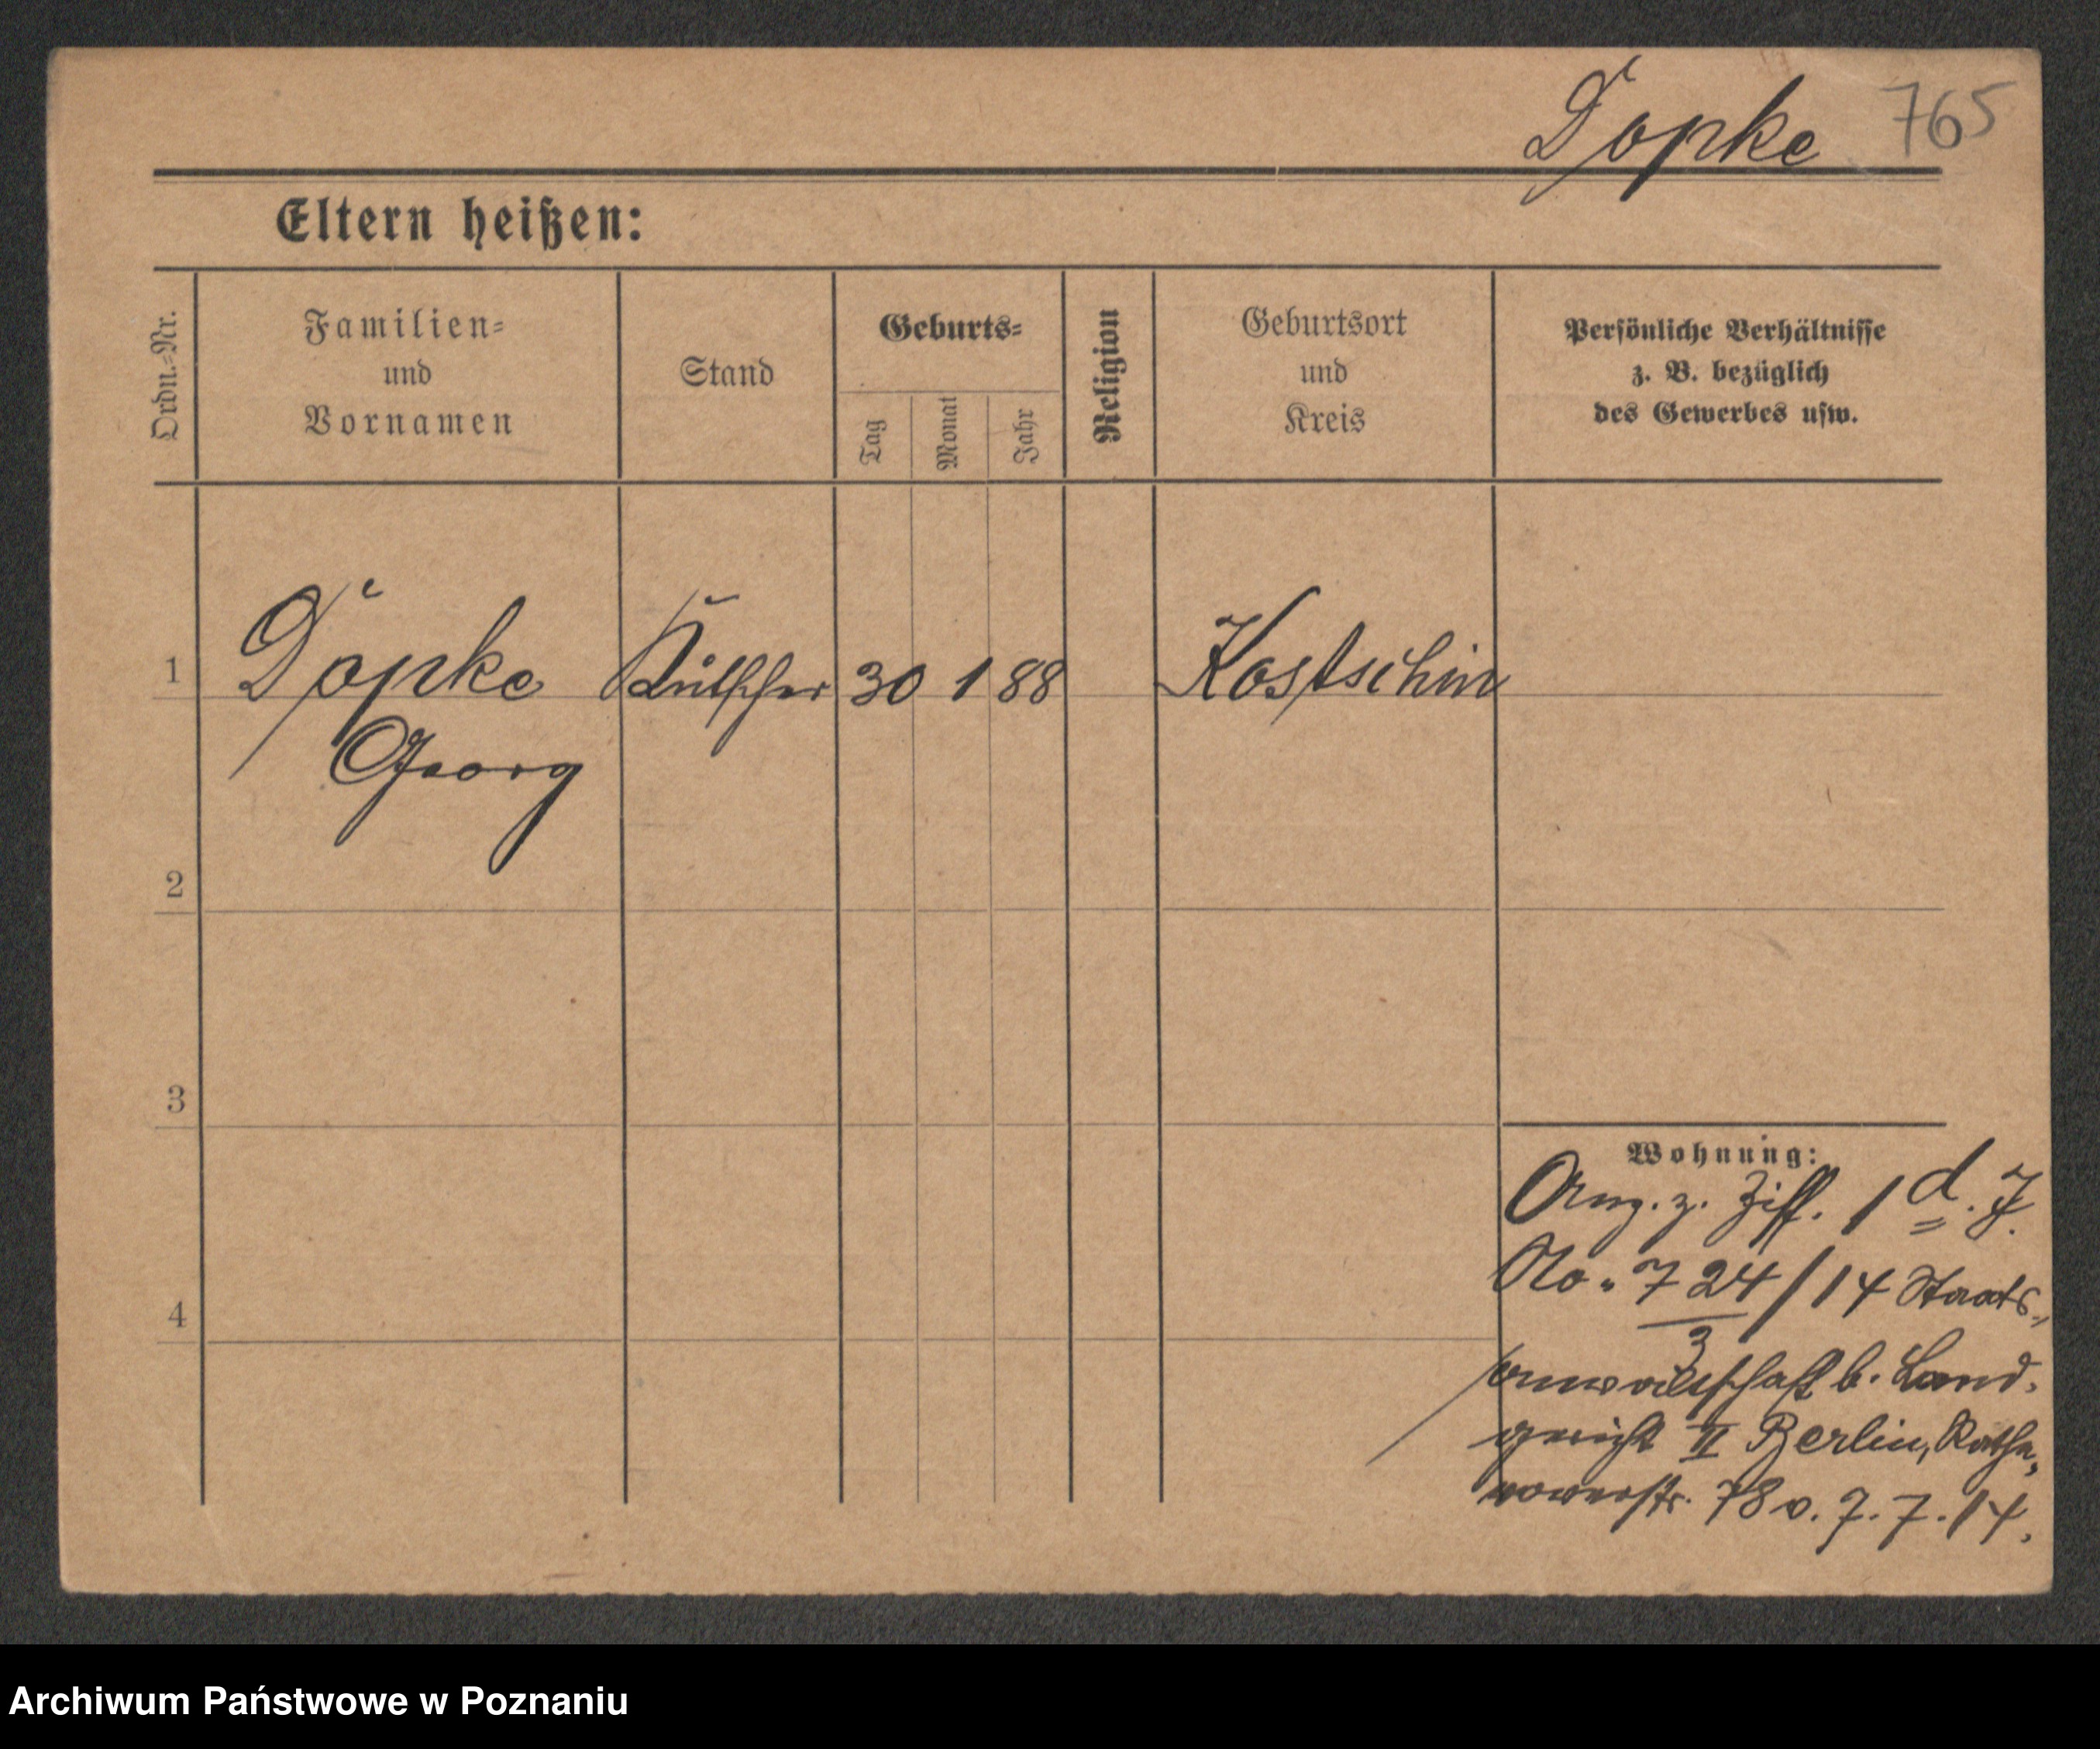 Döpke 765
Eltern heißen:
Ordn.=Nr.
Familien=
und
Vornamen
Stand
Geburts=
Tag
Monat
Jahr
Religion
Geburtsort
und
Kreis
Persönliche Verhältnisse
z. B. bezüglich
des Gewerbes usw.
1 Döpke Kutscher 30 1 88 Kostschin
Georg
2
3
4
Wohnung:
z. Ziff. 1 d. J.
No. 724/14 Staats-
3
anwaltschaft b. Land-
gericht II Berlin, Rathe-
nowerstr. 78 v. 7. 7. 14.
Archiwum Państwowe w Poznaniu